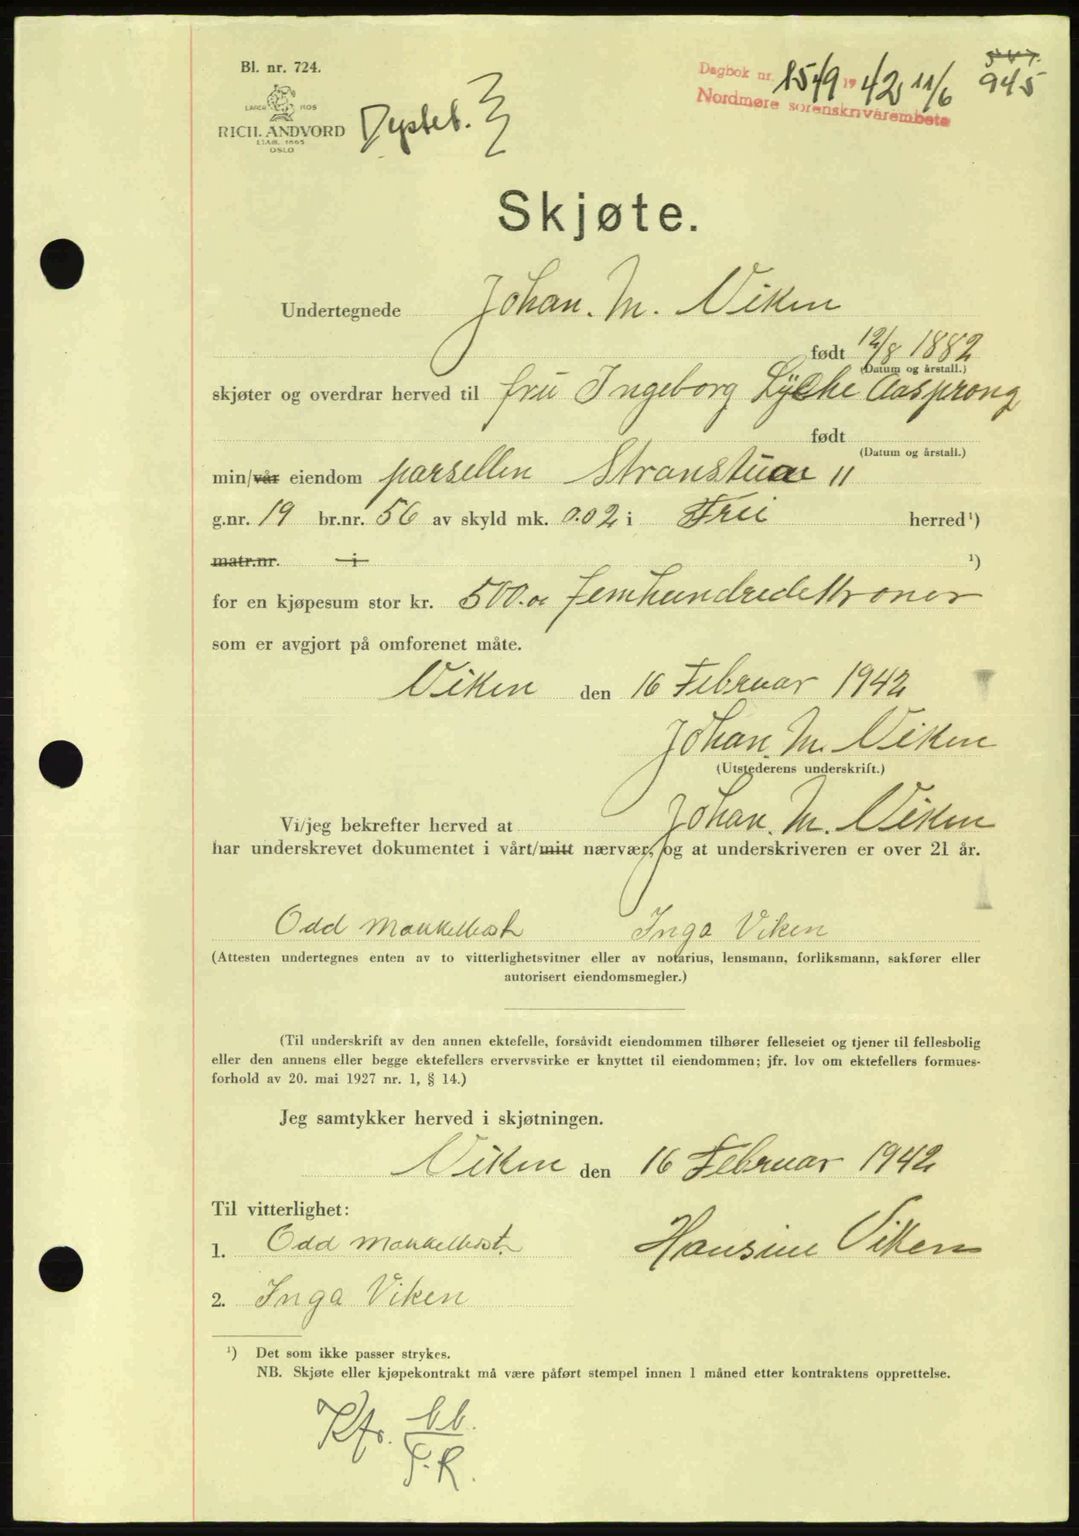 Bl. nr. 724.
RICH. ANDVORD
ETAB. 1865
OSLO
Dagbok nr. 1549 1942 11/6
Nordmøre sorenskrivarembete
945
Skjøte.
Undertegnede Johan. M. Viken
født 12/8 1882
(Datum og årstall.)
skjøter og overdrar herved til fru Ingeborg Lyche Aasprong
født
(Datum og årstall.)
min/vår eiendom parsellen Stranstua II
g.nr. 19 br.nr. 56 av skyld mk. 0.02 i Frei herred¹)
matr.nr. i ¹)
for en kjøpesum stor kr. 500.00 femhundredekroner
som er avgjort på omforenet måte.
Viken den 16 Februar 1942
Johan. M. Viken
(Utstederens underskrift.)
Vi/jeg bekrefter herved at Johan. M. Viken
har underskrevet dokumentet i vårt/mitt nærvær, og at underskriveren er over 21 år.
Odd Inga Viken
(Attesten undertegnes enten av to vitterlighetsvitner eller av notarius, lensmann, forliksmann, sakfører eller
autorisert eiendomsmegler.)
(Til underskrift av den annen ektefelle, forsåvidt eiendommen tilhører felleseiet og tjener til fellesbolig
eller den annens eller begge ektefellers ervervsvirke er knyttet til eiendommen; jfr. lov om ektefellers formues-
forhold av 20. mai 1927 nr. 1, § 14.)
Jeg samtykker herved i skjøtningen.
Viken den 16 Februar 1942
Til vitterlighet:
1. Odd Hansine Viken
2. Inga Viken
¹) Det som ikke passer strykes.
NB. Skjøte eller kjøpekontrakt må være påført stempel innen 1 måned etter kontraktens opprettelse.